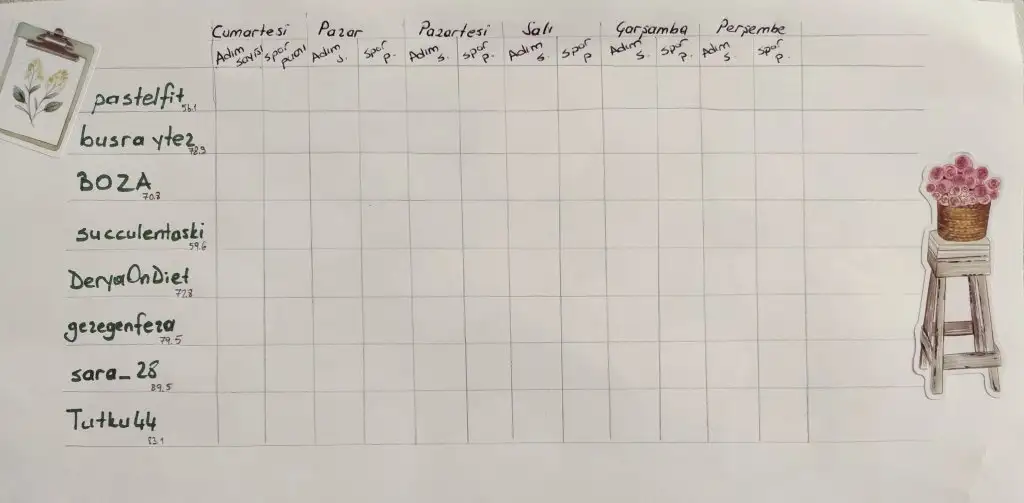 Cumartesi Pazar Pazartesi Salı Çarşamba Perşembe
Adım sayısı spor puanı Adım s. spor p. Adım s. spor p. Adım s. spor p Adım s. spor p. Adım s. spor p.
pastelfit
56.1
busra ytez
78.9
BOZA
70.8
succulentaski
59.6
DeryaOnDiet
72.8
gezegenfeza
79.5
sara_28
89.5
Tutku44
83.1